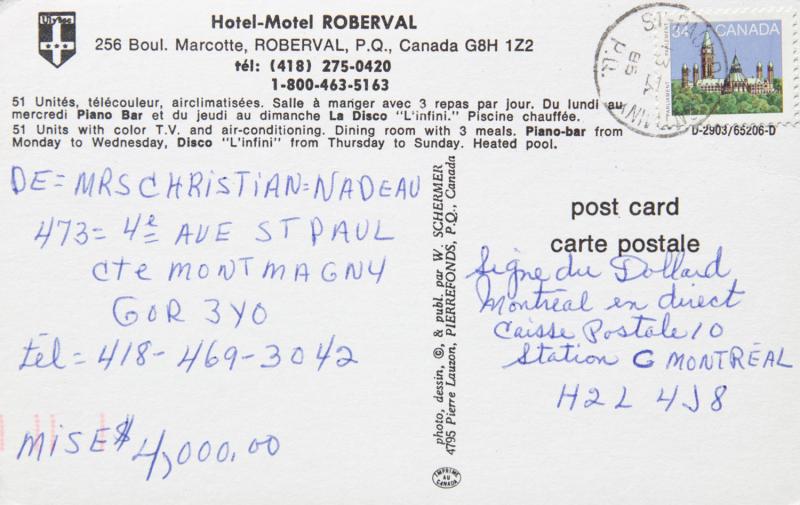 Ulysse
Hotel-Motel ROBERVAL
256 Boul. Marcotte, ROBERVAL, P.Q., Canada G8H 1Z2
tél: (418) 275-0420
1-800-463-5163
51 Unités, télécouleur, airclimatisées. Salle à manger avec 3 repas par jour. Du lundi au
mercredi Piano Bar et du jeudi au dimanche La Disco "L'infini." Piscine chauffée.
51 Units with color T.V. and air-conditioning. Dining room with 3 meals. Piano-bar from
Monday to Wednesday, Disco "L'infini" from Thursday to Sunday. Heated pool.
34 CANADA
PARLEMENT
PARLIAMENT
P.Q.
D-2903/65206-D
DE = MRS CHRISTIAN = NADEAU
473 = 4e AVE ST PAUL
cte MONTMAGNY
GOR 3YO
tel = 418-469-3042
MISE $ 4,000.00
photo, dessin, ©, & publ. par W. SCHERMER
4795 Pierre Lauzon, PIERREFONDS, P.Q., Canada
IMPRIMÉ
AU
CANADA
post card
carte postale
Signe du Dollard
Montréal en direct
Caisse Postale 10
Station C MONTRÉAL
H2L 4J8